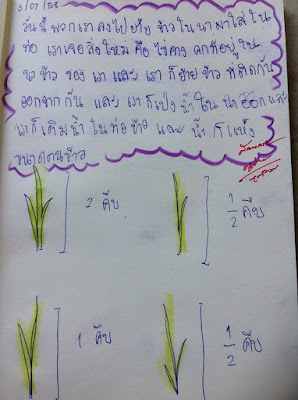 3/07/58
วันนี้ พวก เรา ลง ไป ย้าย ข้าว ใน นา มา ใส่ ใน
ท่อ เรา เจอ สิ่ง ใหม่ คือ ไข่ คางคก ที่ อยู่ ใน
นา ข้าว ของ เรา และ เรา ก็ ย้าย ข้าว ที่ ติด กัน
ออก จาก กัน และ เรา ก็ น้ำ ใน นา ออก และ
เรา ก็ เติม น้ำ ใน ท่อ ข้าว และ น้ำ ก็ แห้ง
ขนาด ต้น ข้าว
2 คืบ
1/2 คืบ
1 คืบ
1/2 คืบ